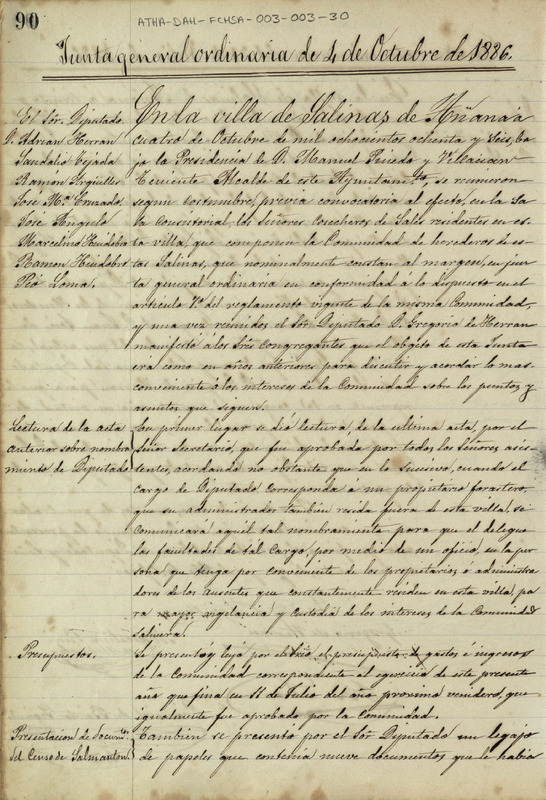 90
ATHA-DAH-FCHSA-003-003-30
Junta general ordinaria de 4 de Octubre de 1886.
El Sõr. Diputado
D. Adrian Herran
Sandalio Tejada
Ramón Argüelles
José Mª Cruzado
José Angulo
Marcelino Huidobro
Ramon Huidobro
Pio Loma.
En la villa de Salinas de Añana á
cuatro de Octubre de mil ochocientos ochenta y seis, ba-
jo la Presidencia de D. Manuel y Villasan
Teniente Alcalde de este Ayuntamto, se reunieron
segun costumbre, previa convocatoria al efecto, en la Sa-
la Consistorial, los Señores Cosecheros de Sales residentes en es-
ta villa, que componen la Comunidad de herederos de es-
tas Salinas, que nominalmente constan al margen, en jun-
ta general ordinaria en conformidad á lo dispuesto en el
articulo 7º del reglamento vigente de la misma Comunidad,
y una vez reunidos el Sõr Diputado D. Gregorio de Herran
manifestó á los Sres congregantes que el objeto de esta Junta
era como en años anteriores para discutir y acordar lo mas
conveniente á los intereses de la Comunidad sobre los puntos y
asuntos que siguen.
Lectura de la acta
anterior sobre nombra-
miento de Diputado
En primer lugar se dió lectura, de la ultima acta, por el
Señor Secretario, que fue aprobada por todos los Señores asis-
tentes, acordando no obstante que en lo sucesivo, cuando el
cargo de Diputado corresponda á un propietario forastero,
que su administrador tambien resida fuera de esta villa, se
comunicará aquél tal nombramiento para que el delegue
las facultades de tal cargo, por medio de un oficio, en la per-
sona que tenga por conveniente de los propietarios ó administra-
dores de los ausentes que constantemente residen en esta villa, pa-
ra mayor vigilancia y custodia de los intereses de la Comunidad
Salinera.
Presupuestos.
Se presentó y leyó por el Srio el presupuesto de gastos é ingresos
de la Comunidad correspondiente al egercicio de este presente
año que fina en 11 de Julio del año procsimo venidero, que
igualmente fue aprobado por la Comunidad.
Presentacion de Docum.tos
del Censo de Salmanton
Tambien se presentó por el Sõr Diputado un legajo
de papeles que contenia nueve documentos que le habia